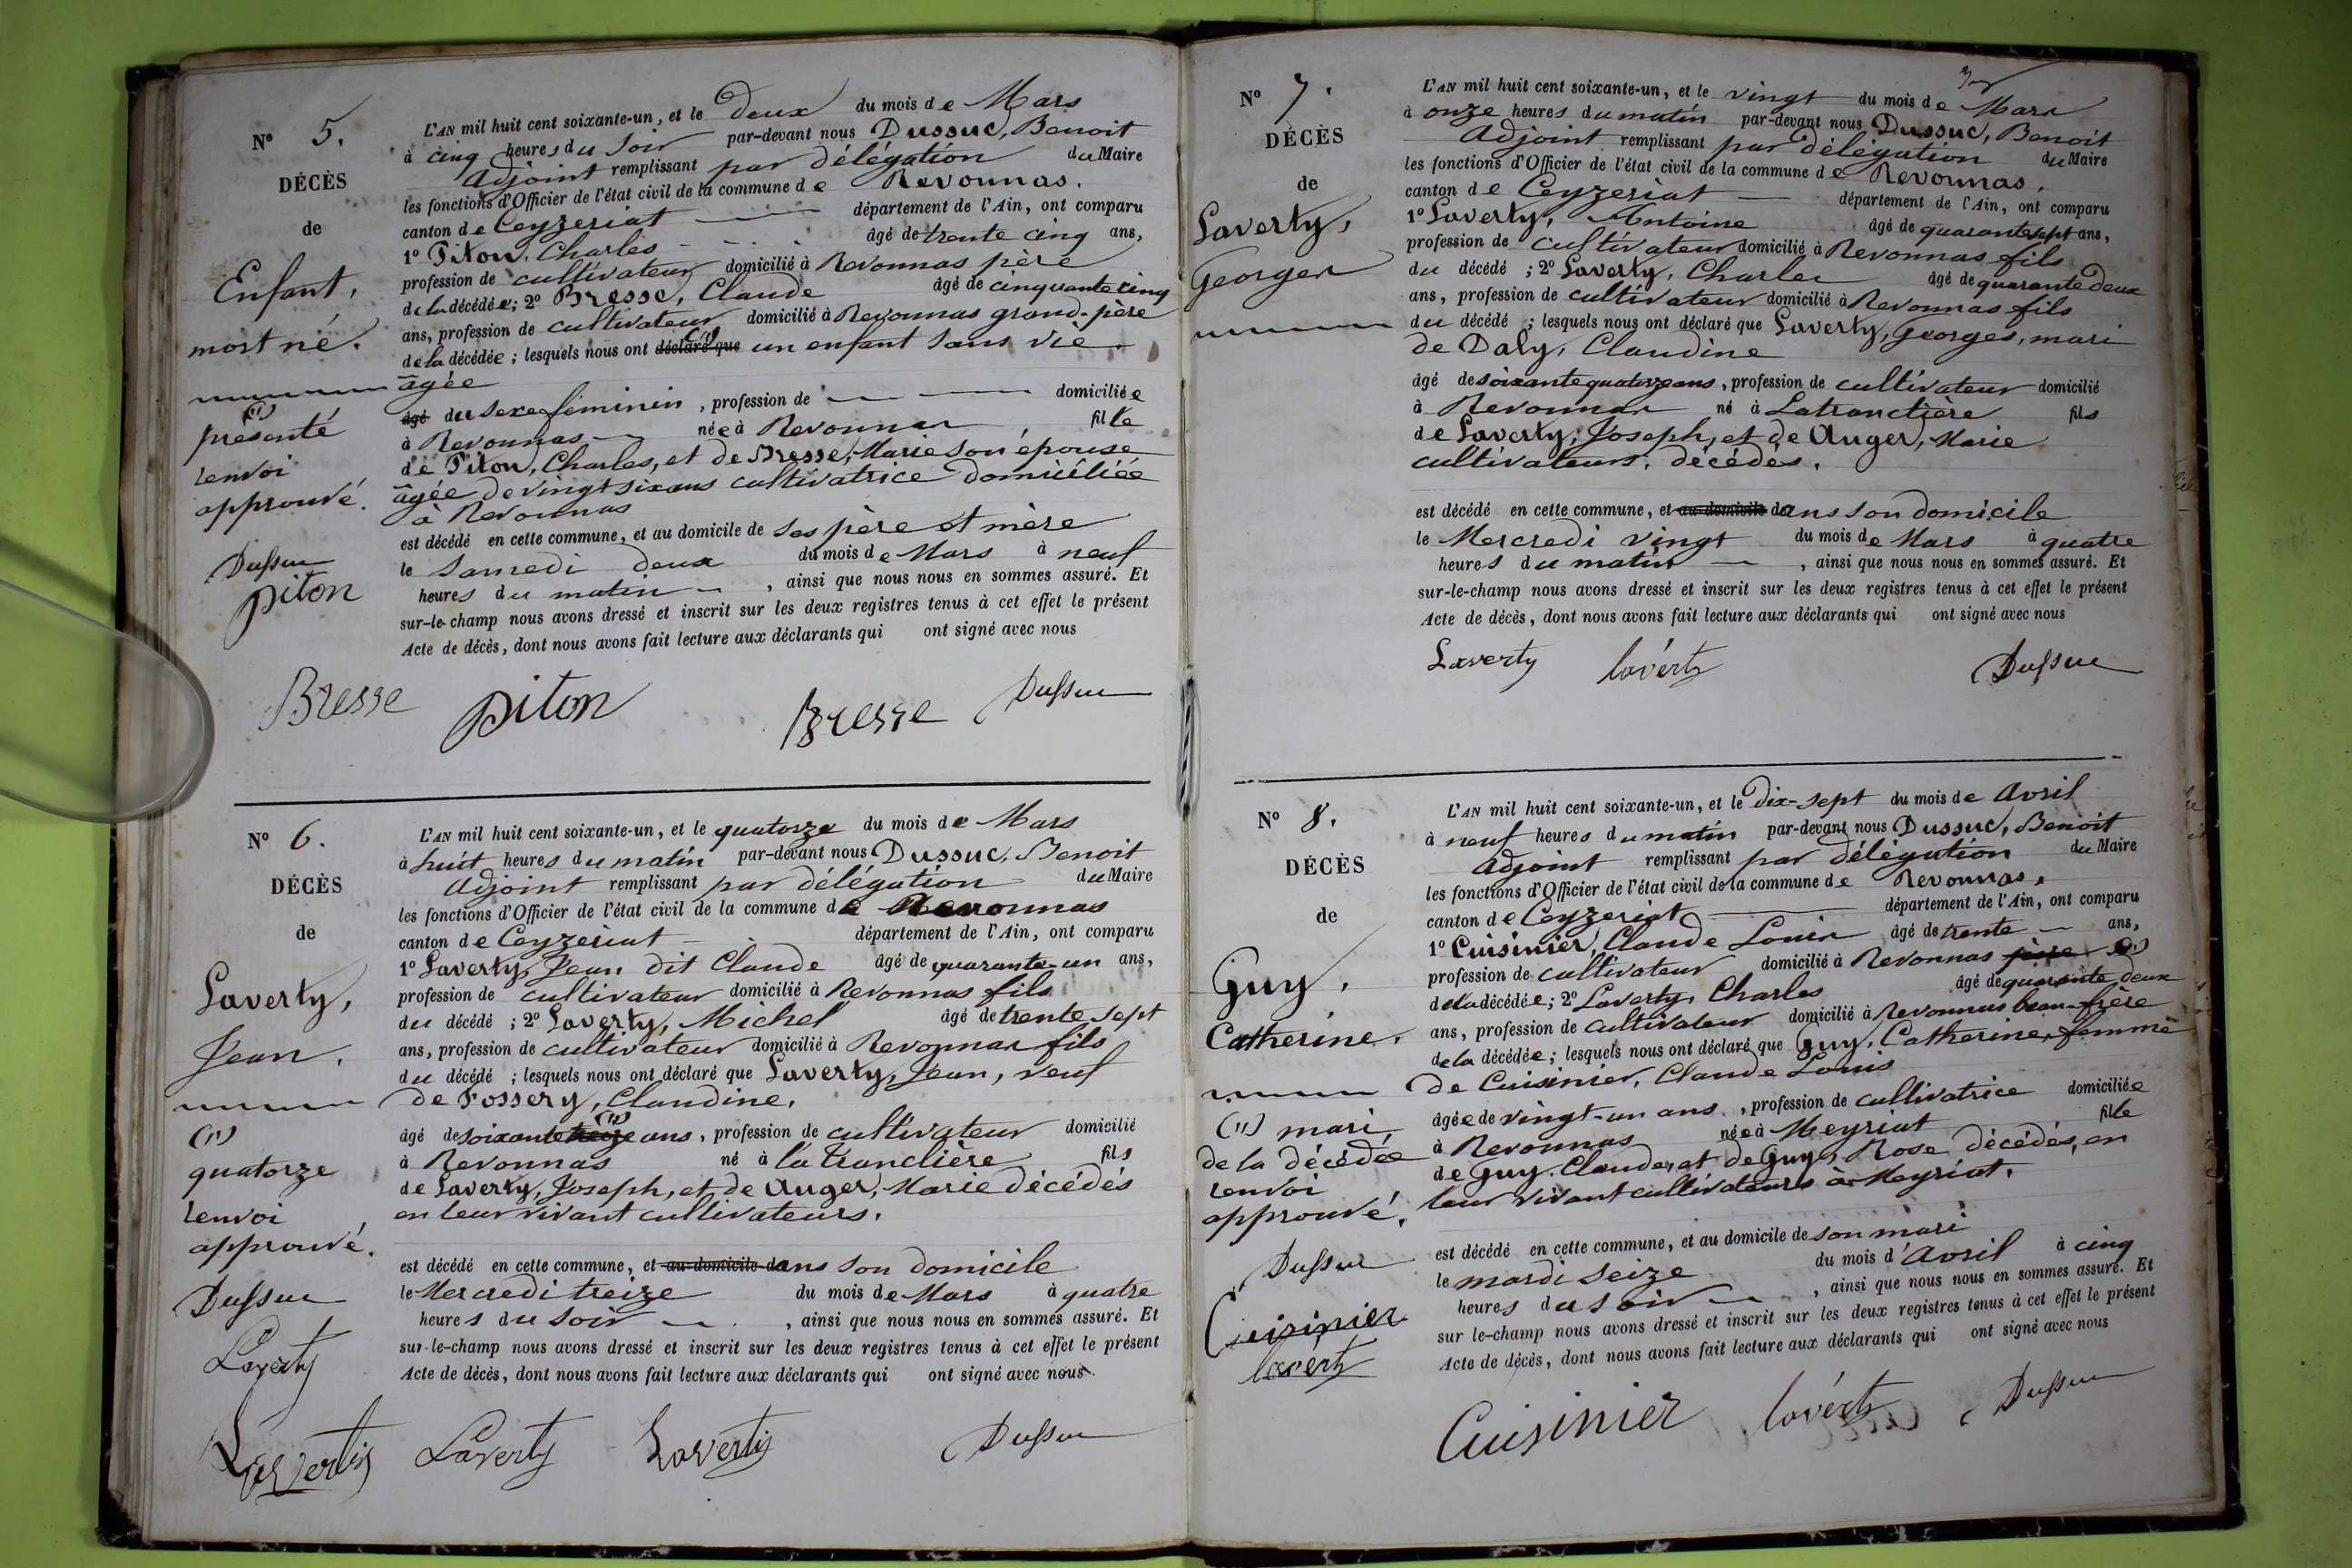 N° 5.
DÉCÈS
de
Enfant,
mort né.
(1)
présenté
renvoi
approuvé.
Dussuc
Piton
L'AN mil huit cent soixante-un, et le deux du mois de Mars
à cinq heures du soir par-devant nous Dussuc, Benoit
Adjoint remplissant par délégation du Maire
les fonctions d'Officier de l'état civil de la commune de Revonnas.
canton de Ceyzeriat département de l'Ain, ont comparu
1° Piton, Charles âgé de trente cinq ans,
profession de cultivateur domicilié à Revonnas père
de la décédée; 2° Bresse, Claude âgé de cinquante cinq
ans, profession de cultivateur domicilié à Revonnas grand-père
de la décédée; lesquels nous ont déclaré que (1) un enfant sans vie
âgée
âgé du sexe féminin, profession de domiciliée
à Revonnas née à Revonnas, fille
de Piton, Charles, et de Bresse, Marie son épouse
âgée de vingt six ans cultivatrice domiciliée
à Revonnas
est décédé en cette commune, et au domicile de ses père et mère
le samedi deux du mois de Mars à neuf
heures du matin, ainsi que nous nous en sommes assuré. Et
sur-le-champ nous avons dressé et inscrit sur les deux registres tenus à cet effet le présent
Acte de décès, dont nous avons fait lecture aux déclarants qui ont signé avec nous
Bresse Piton Bresse Dussuc
N° 6.
DÉCÈS
de
Laverty,
Jean.
(1)
quatorze
renvoi
approuvé.
Dussuc
Laverty
L'AN mil huit cent soixante-un, et le quatorze du mois de Mars
à huit heures du matin par-devant nous Dussuc, Benoit
Adjoint remplissant par délégation du Maire
les fonctions d'Officier de l'état civil de la commune de Revonnas
canton de Ceyzeriat département de l'Ain, ont comparu
1° Laverty, Jean dit Claude âgé de quarante-un ans,
profession de cultivateur domicilié à Revonnas fils
du décédé; 2° Laverty, Michel âgé de trente sept
ans, profession de cultivateur domicilié à Revonnas fils
du décédé; lesquels nous ont déclaré que Laverty, Jean, veuf
de Fossery, Claudine.
âgé de soixante treize (1) ans, profession de cultivateur domicilié
à Revonnas né à la tranclière fils
de Laverty, Joseph, et de Auger, Marie décédés
en leur vivant cultivateurs.
est décédé en cette commune, et au domicile dans son domicile
le Mercredi treize du mois de Mars à quatre
heures du soir, ainsi que nous nous en sommes assuré. Et
sur-le-champ nous avons dressé et inscrit sur les deux registres tenus à cet effet le présent
Acte de décès, dont nous avons fait lecture aux déclarants qui ont signé avec nous.
Lavertis Laverty Lavertis Dussuc
N° 7.
DÉCÈS
de
Laverty,
Georges
L'AN mil huit cent soixante-un, et le vingt du mois de Mars
à onze heures du matin par-devant nous Dussuc, Benoit
Adjoint remplissant par délégation du Maire
les fonctions d'Officier de l'état civil de la commune de Revonnas.
canton de Ceyzeriat département de l'Ain, ont comparu
1° Laverty, Antoine âgé de quarante sept ans,
profession de cultivateur domicilié à Revonnas fils
du décédé; 2° Laverty, Charles âgé de quarante deux
ans, profession de cultivateur domicilié à Revonnas fils
du décédé; lesquels nous ont déclaré que Laverty, Georges, mari
de Daly, Claudine
âgé de soixante quatorze ans, profession de cultivateur domicilié
à Revonnas né à Latranclière fils
de Laverty, Joseph, et de Auger, Marie
cultivateurs, décédés.
est décédé en cette commune, et au domicile dans son domicile
le Mercredi vingt du mois de Mars à quatre
heures du matin, ainsi que nous nous en sommes assuré. Et
sur-le-champ nous avons dressé et inscrit sur les deux registres tenus à cet effet le présent
Acte de décès, dont nous avons fait lecture aux déclarants qui ont signé avec nous
Laverty lavérty Dussuc
N° 8.
DÉCÈS
de
Guy,
Catherine.
(1) mari
de la décédée
renvoi
approuvé.
Dussuc
Cuisinier
laverty
L'AN mil huit cent soixante-un, et le dix-sept du mois de Avril
à neuf heures du matin par-devant nous Dussuc, Benoit
Adjoint remplissant par délégation du Maire
les fonctions d'Officier de l'état civil de la commune de Revonnas.
canton de Ceyzeriat département de l'Ain, ont comparu
1° Cuisinier, Claude Louis âgé de trente ans,
profession de cultivateur domicilié à Revonnas père (1)
de la décédée; 2° Laverty, Charles âgé de quarante deux
ans, profession de cultivateur domicilié à Revonnas beau-frère
de la décédée; lesquels nous ont déclaré que Guy, Catherine, femme
de Cuisinier, Claude Louis
âgée de vingt-un ans, profession de cultivatrice domiciliée
à Revonnas née à Meyriat fille
de Guy, Claude, et de Guy, Rose décédés, en
leur vivant cultivateurs à Meyriat.
est décédé en cette commune, et au domicile de son mari
le mardi seize du mois d'Avril à cinq
heures du soir, ainsi que nous nous en sommes assuré. Et
sur le-champ nous avons dressé et inscrit sur les deux registres tenus à cet effet le présent
Acte de décès, dont nous avons fait lecture aux déclarants qui ont signé avec nous
Cuisinier lavérty Dussuc